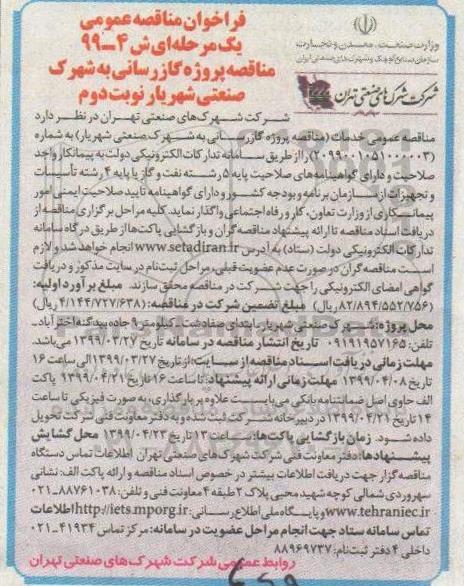 فراخوان مناقصه عمومی
یک مرحله‌ای ش ۴-۹۹
مناقصه پروژه گازرسانی به شهرک
صنعتی شهریار نوبت دوم
وزارت صنعت، معدن و تجارت
سازمان صنایع کوچک و شهرک‌های صنعتی ایران
شرکت شهرک‌های صنعتی تهران
شرکت شهرک‌های صنعتی تهران در نظر دارد
مناقصه عمومی خدمات (مناقصه پروژه گازرسانی به شهرک صنعتی شهریار) به شماره
(۲۰۹۹۰۰۱۰۵۱۰۰۰۰۰۳) را از طریق سامانه تدارکات الکترونیکی دولت به پیمانکار واجد
صلاحیت و دارای گواهینامه‌های صلاحیت پایه ۵ رشته نفت و گاز یا پایه ۴ رشته تأسیسات
و تجهیزات از سازمان برنامه و بودجه کشور و دارای گواهینامه تایید صلاحیت ایمنی امور
پیمانکاری از وزارت تعاون، کار و رفاه اجتماعی واگذار نماید. کلیه مراحل برگزاری مناقصه از
دریافت اسناد مناقصه تا ارائه پیشنهاد مناقصه گران و بازگشایی پاکت‌ها از طریق درگاه سامانه
تدارکات الکترونیکی دولت (ستاد) به آدرس www.setadiran.ir انجام خواهد شد و لازم
است مناقصه گران در صورت عدم عضویت قبلی، مراحل ثبت‌نام در سایت مذکور و دریافت
گواهی امضای الکترونیکی را جهت شرکت در مناقصه محقق سازند. مبلغ برآورد اولیه:
(۸۲/۸۹۴/۵۵۲/۷۵۶ ریال) مبلغ تضمین شرکت در مناقصه: (۴/۱۴۴/۷۲۷/۶۳۸ ریال)
محل پروژه: شهرک صنعتی شهریار، ابتدای صفادشت، کیلومتر ۹ جاده بیدگنه اخترآباد-
تلفن: ۰۹۱۹۱۹۵۷۱۶۵ تاریخ انتشار مناقصه در سامانه تاریخ ۱۳۹۹/۰۳/۲۷ می‌باشد.
مهلت زمانی دریافت اسناد مناقصه از سایت: از تاریخ ۱۳۹۹/۰۳/۲۷ الی ساعت ۱۶
تاریخ ۱۳۹۹/۰۴/۰۸ مهلت زمانی ارائه پیشنهاد: تا ساعت ۱۶ تاریخ ۱۳۹۹/۰۴/۲۱ پاکت
الف حاوی اصل ضمانتنامه بانکی می‌بایست علاوه بر بارگذاری، به صورت فیزیکی تا ساعت
۱۴ تاریخ ۱۳۹۹/۰۴/۲۱ در دبیرخانه شرکت ثبت شده و به دفتر معاونت فنی شرکت تحویل
داده شود. زمان بازگشایی پاکت‌ها: ساعت ۱۳ تاریخ ۱۳۹۹/۰۴/۲۳ محل گشایش
پیشنهادها: دفتر معاونت فنی شرکت شهرک‌های صنعتی تهران اطلاعات تماس دستگاه
مناقصه گزار جهت دریافت اطلاعات بیشتر در خصوص اسناد مناقصه و ارائه پاکت الف: نشانی
سهروردی شمالی کوچه شهید محبی پلاک ۲ طبقه ۴ معاونت فنی و تلفن: ۸۸۷۶۱۰۳۸-۰۲۱
www.tehraniec.ir و پایگاه ملی اطلاع‌رسانی: http://iets.mporg.ir اطلاعات
تماس سامانه ستاد جهت انجام مراحل عضویت در سامانه: مرکز تماس ۴۱۹۳۴-۰۲۱
داخلی ۴ دفتر ثبت‌نام: ۸۸۹۶۹۷۳۷
روابط عمومی شرکت شهرک‌های صنعتی تهران